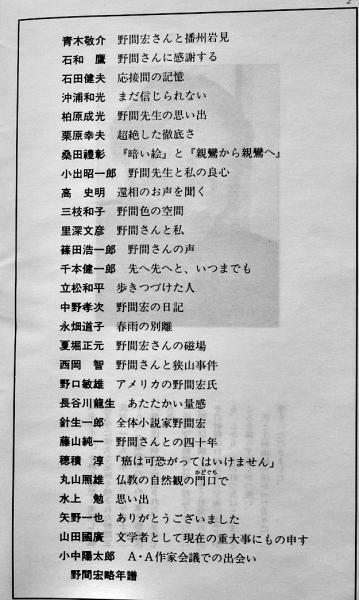 2
青木敬介 野間宏さんと播州岩見
石和 鷹 野間さんに感謝する
石田健夫 応接間の記憶
沖浦和光 まだ信じられない
柏原成光 野間先生の思い出
栗原幸夫 超絶した徹底さ
桑田禮彰 『暗い絵』と『親鸞から親鸞へ』
小出昭一郎 野間先生と私の良心
高 史明 還相のお声を聞く
三枝和子 野間色の空間
里深文彦 野間さんと私
篠田浩一郎 野間さんの声
千本健一郎 先へ先へと、いつまでも
立松和平 歩きつづけた人
中野孝次 野間宏の日記
永畑道子 春雨の別離
夏堀正元 野間宏さんの磁場
西岡 智 野間さんと狭山事件
野口敏雄 アメリカの野間宏氏
長谷川龍生 あたたかい量感
針生一郎 全体小説家野間宏
藤山純一 野間さんとの四十年
穂積 淳 「癌は可恐がってはいけません」
丸山照雄 仏教の自然観の門口で
かどぐち
水上 勉 思い出
矢野一也 ありがとうございました
山田國廣 文学者として現在の重大事にもの申す
小中陽太郎 A・A作家会議での出会い
野間宏略年譜